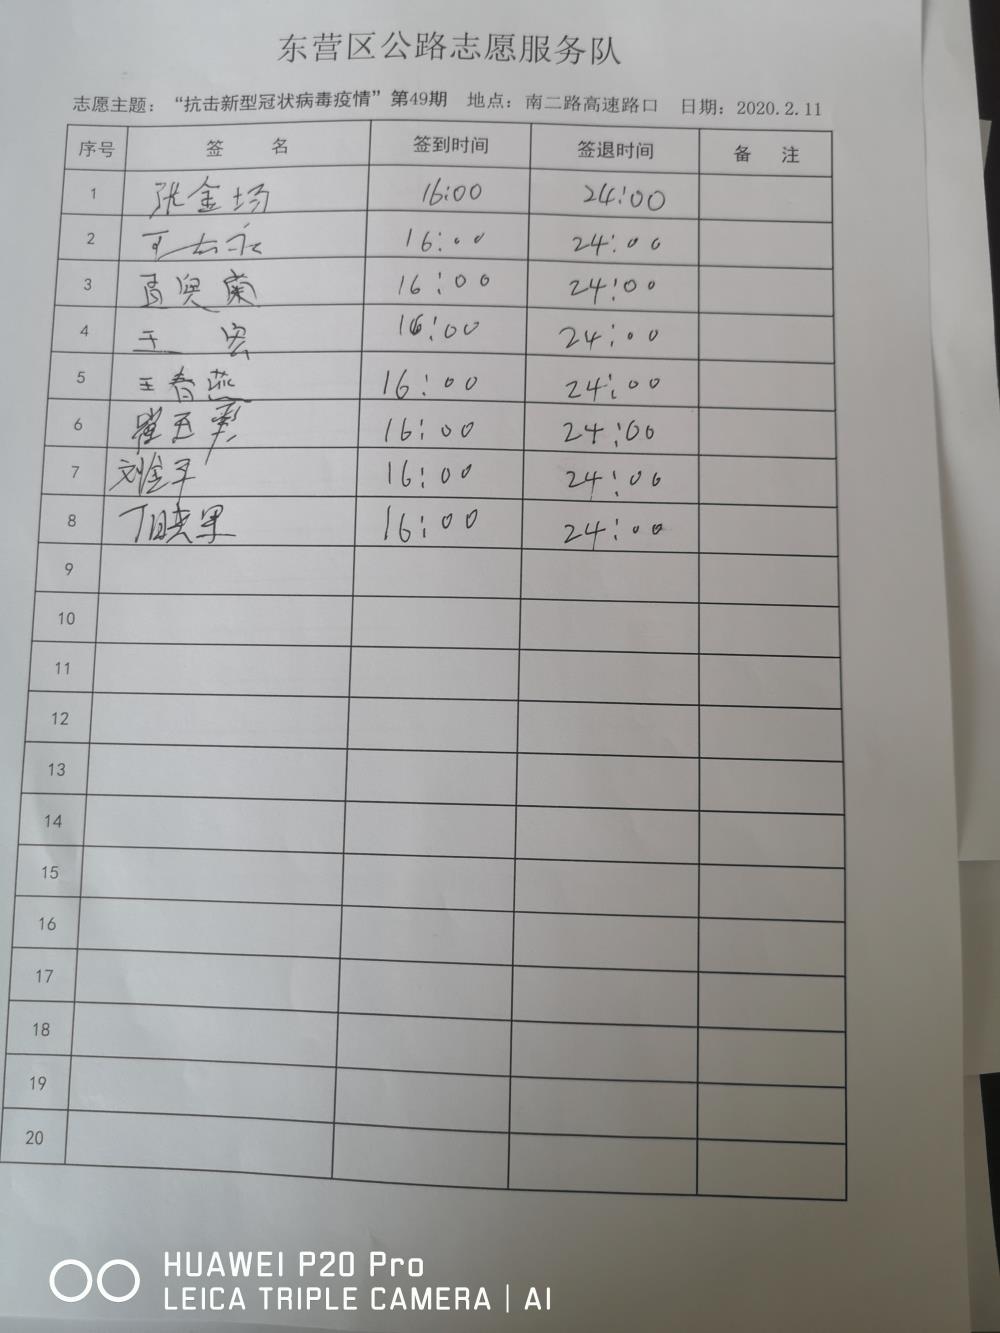 东营区公路志愿服务队
志愿主题：“抗击新型冠状病毒疫情”第49期 地点：南二路高速路口 日期：2020.2.11
序号 签 名 签到时间 签退时间 备 注
1 张金场 16:00 24:00
2 16:00 24:00
3 16:00 24:00
4 王 宏 16:00 24:00
5 王春燕 16:00 24:00
6 16:00 24:00
7 刘金平 16:00 24:00
8 16:00 24:00
9
10
11
12
13
14
15
16
17
18
19
20
HUAWEI P20 Pro
LEICA TRIPLE CAMERA | AI